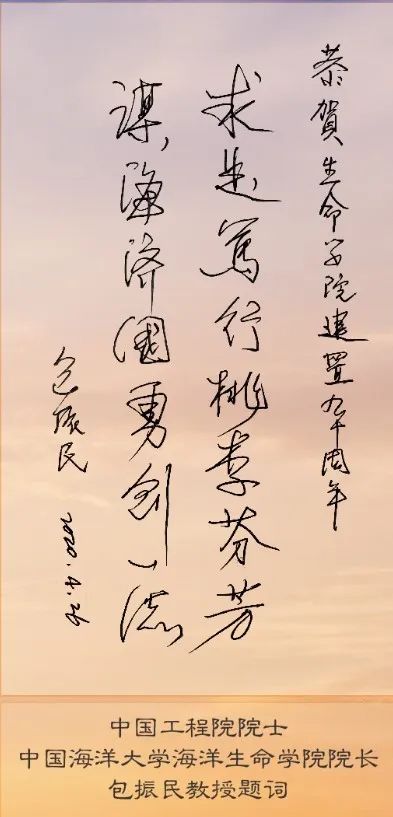 恭賀生命学院建置九十周年
求是篤行桃李芬芳
謀海济國勇创一流
包振民
中国工程院院士
中国海洋大学海洋生命学院院长
包振民教授题词